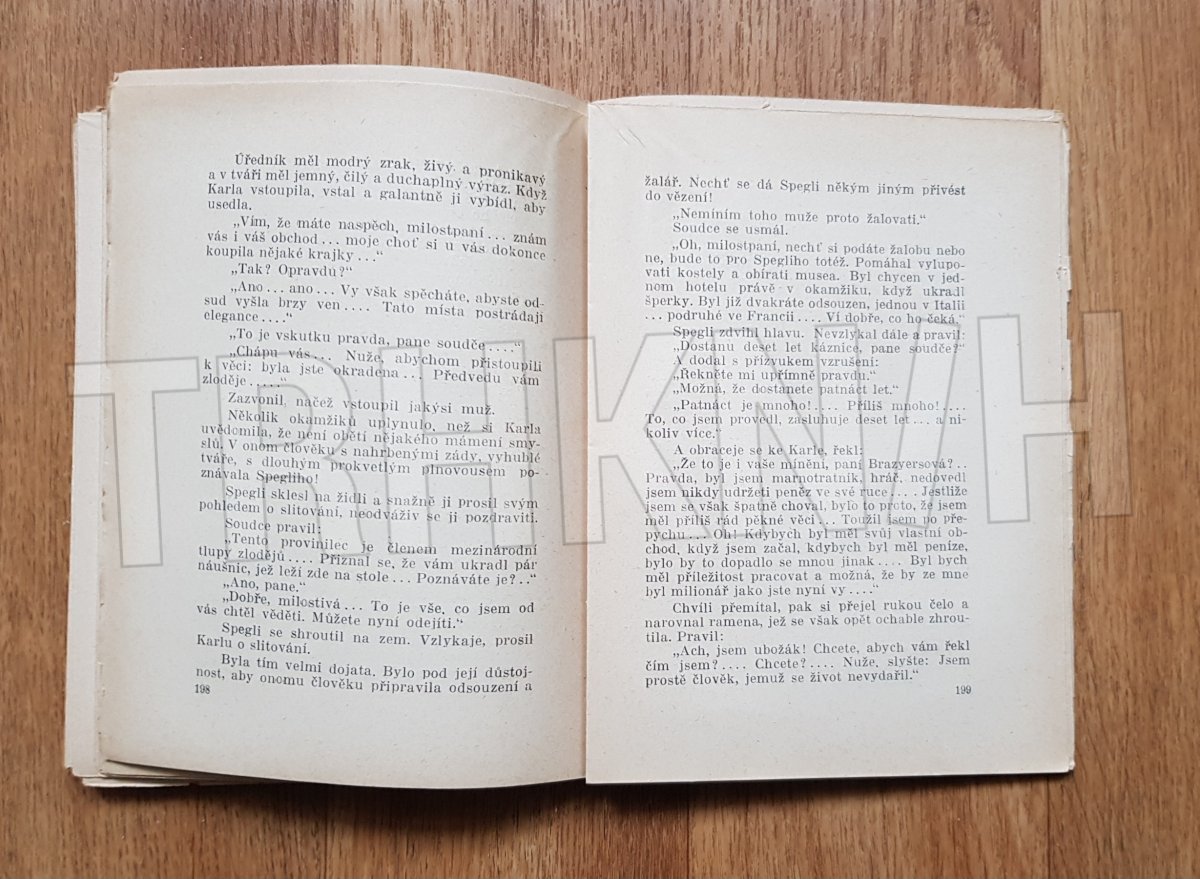 Úředník měl modrý zrak, živý a pronikavý
a v tváři měl jemný, čilý a duchaplný výraz. Když
Karla vstoupila, vstal a galantně ji vybídl, aby
usedla.
„Vím, že máte naspěch, milostpaní... znám
vás i váš obchod... moje choť si u vás dokonce
koupila nějaké krajky...“
„Tak? Opravdu?“
„Ano... ano... Vy však spěcháte, abyste od-
sud vyšla brzy ven.... Tato místa postrádají
elegance....“
„To je vskutku pravda, pane soudče....“
„Chápu vás... Nuže, abychom přistoupili
k věci: byla jste okradena... Předvedu vám
zloděje.....“
Zazvonil, načež vstoupil jakýsi muž.
Několik okamžiků uplynulo, než si Karla
uvědomila, že není obětí nějakého mámení smy-
slů. V onom člověku s nahrbenými zády, vyhublé
tváře, s dlouhým prokvetlým plnovousem po-
znávala Spegliho!
Spegli sklesl na židli a snažně ji prosil svým
pohledem o slitování, neodváživ se ji pozdraviti.
Soudce pravil:
„Tento provinilec je členem mezinárodní
tlupy zlodějů.... Přiznal se, že vám ukradl pár
náušnic, jež leží zde na stole... Poznáváte je?..“
„Ano, pane.“
„Dobře, milostivá... To je vše, co jsem od
vás chtěl věděti. Můžete nyní odejíti.“
Spegli se shroutil na zem. Vzlykaje, prosil
Karlu o slitování.
Byla tím velmi dojata. Bylo pod její důstoj-
nost, aby onomu člověku připravila odsouzení a
198
žalář. Nechť se dá Spegli někým jiným přivést
do vězení!
„Nemíním toho muže proto žalovati.“
Soudce se usmál.
„Oh, milostpaní, nechť si podáte žalobu nebo
ne, bude to pro Spegliho totéž. Pomáhal vylupo-
vati kostely a obírati musea. Byl chycen v jed-
nom hotelu právě v okamžiku, když ukradl
šperky. Byl již dvakráte odsouzen, jednou v Italii
... podruhé ve Francii.... Ví dobře, co ho čeká.“
Spegli zdvihl hlavu. Nevzlykal dále a pravil:
„Dostanu deset let káznice, pane soudče?“
A dodal s přízvukem vzrušení:
„Řekněte mi upřímně pravdu.“
„Možná, že dostanete patnáct let.“
„Patnáct je mnoho!.... Příliš mnoho!....
To, co jsem provedl, zasluhuje deset let... a ni-
koliv více.“
A obraceje se ke Karle, řekl:
„Že to je i vaše mínění, paní Brazyersová?..
Pravda, byl jsem marnotratník, hráč, nedovedl
jsem nikdy udržeti peněz ve své ruce.... Jestliže
jsem se však špatně choval, bylo to proto, že jsem
měl příliš rád pěkné věci... Toužil jsem po pře-
pychu... Oh! Kdybych byl měl svůj vlastní ob-
chod, když jsem začal, kdybych byl měl peníze,
bylo by to dopadlo se mnou jinak.... Byl bych
měl příležitost pracovat a možná, že by ze mne
byl milionář jako jste nyní vy....“
Chvíli přemítal, pak si přejel rukou čelo a
narovnal ramena, jež se však opět ochable zhrou-
tila. Pravil:
„Ach, jsem ubožák! Chcete, abych vám řekl
čím jsem?.... Chcete?.... Nuže, slyšte: Jsem
prostě člověk, jemuž se život nevydařil.“
199
TRHKNIH